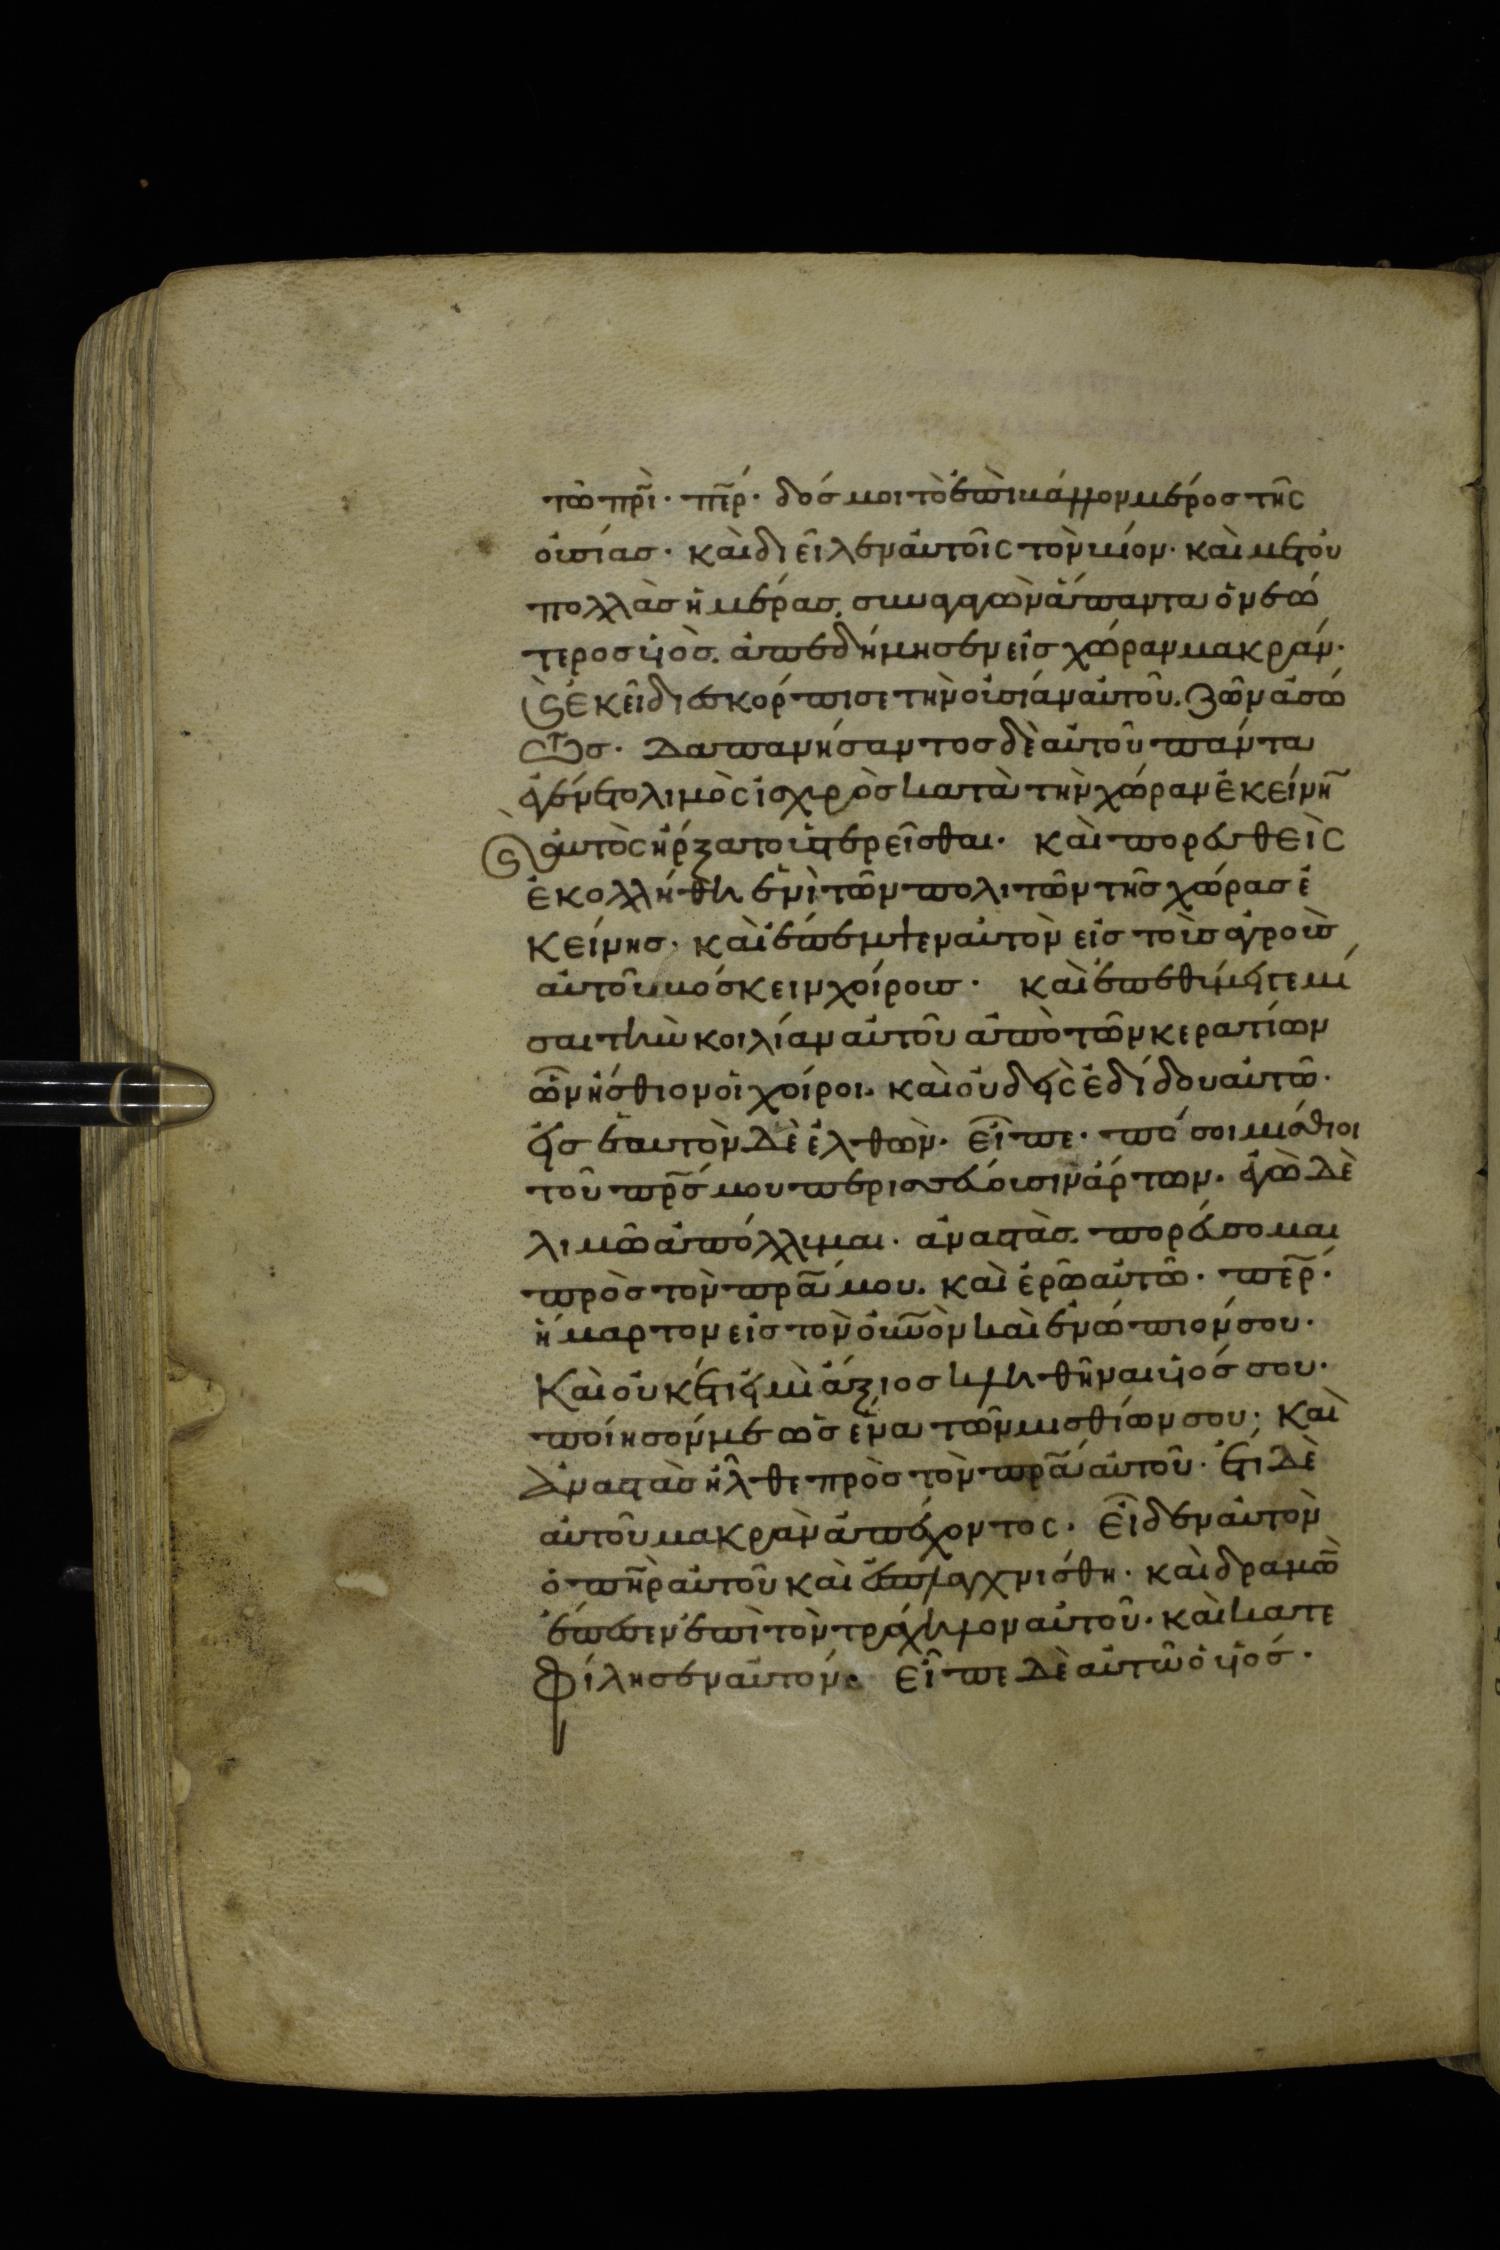 τῶ πρι̃· πε̃ρ· δός μοι τὸ ἐπιβάλλον μέρος τῆς
οὐσίας· καὶ διεῖλεν αὐτοῖς τὸν βίον· καὶ μετ οὐ
πολλὰς ἡμέρας. συναγαγὼν ἅπαντα ὁ νεώ
τερος υἱὸς. ἀπεδήμησεν εἰς χώραν μακράν·
ϗ ἐκεῖ διεσκόρπισε τὴν οὐσίαν αὐτοῦ. ζῶν ἀσώ
τως· δαπανήσαντος δὲ αὐτοῦ πάντα
ἐγένετο λιμὸς ἰσχυρὸς κατὰ τὴν χώραν ἐκείνη̃
ϗ αὐτὸς ἤρξατο ὑστερεῖσθαι· καὶ πορευθεὶς
ἐκολλήθη ἑνὶ τῶν πολιτῶν τῆς χώρας ἐ
κείνης· καὶ ἔπεμψεν αὐτὸν εἰς τοὺς ἀγροὺς
αὐτοῦ βόσκειν χοίρους· καὶ ἐπεθύμει γεμί
σαι τὴν κοιλίαν αὐτοῦ ἀπὸ τῶν κερατίων
ὧν ἤσθιον οἱ χοίροι. καὶ οὐδεὶς ἐδίδου αὐτῶ·
εἰς ἑαυτὸν δὲ ἐλθὼν· εἶπε· πόσοι μίσθιοι
τοῦ πρ̃ς μου περισσεύουσιν ἄρτων. ἐγὼ δὲ
λιμῶ ἀπόλλυμαι· ἀναστὰς. πορεύσομαι
πρὸς τὸν πρ̃α μου. καὶ ἐρῶ αὐτῶ· πε̃ρ·
ἥμαρτον εἰς τὸν οὐν̃ον καὶ ἐνώπιόν σου·
Καὶ οὐκέτι εἰμὶ ἄξιος κληθῆναι υἱός σου·
ποίησόν με ὡς ἕνα τῶν μισθίων σου; Καὶ
ἀναστὰς ἦλθε πρὸς τὸν πρ̃α αὐτοῦ· ἔτι δὲ
αὐτοῦ μακρὰν ἀπέχοντος· εἶδεν αὐτὸν
ὁ πη̃ρ αὐτοῦ καὶ εὐσπλαγχνίσθη· καὶ δραμὼ̃
ἐπέπεσεν ἐπὶ τὸν τράχηλον αὐτοῦ· καὶ κατε
φίλησεν αὐτόν. εἶπε δὲ αὐτῶ ὁ υἱός·